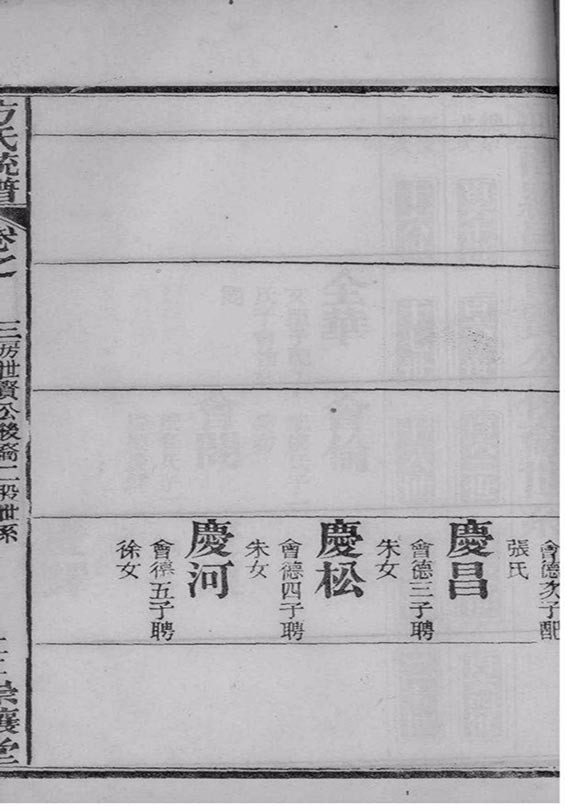 會德次子配
張氏
慶昌
會德三子聘
朱女
慶松
會德四子聘
朱女
慶河
會德五子聘
徐女
方氏統譜
卷之
三房世賢公後裔二股世系